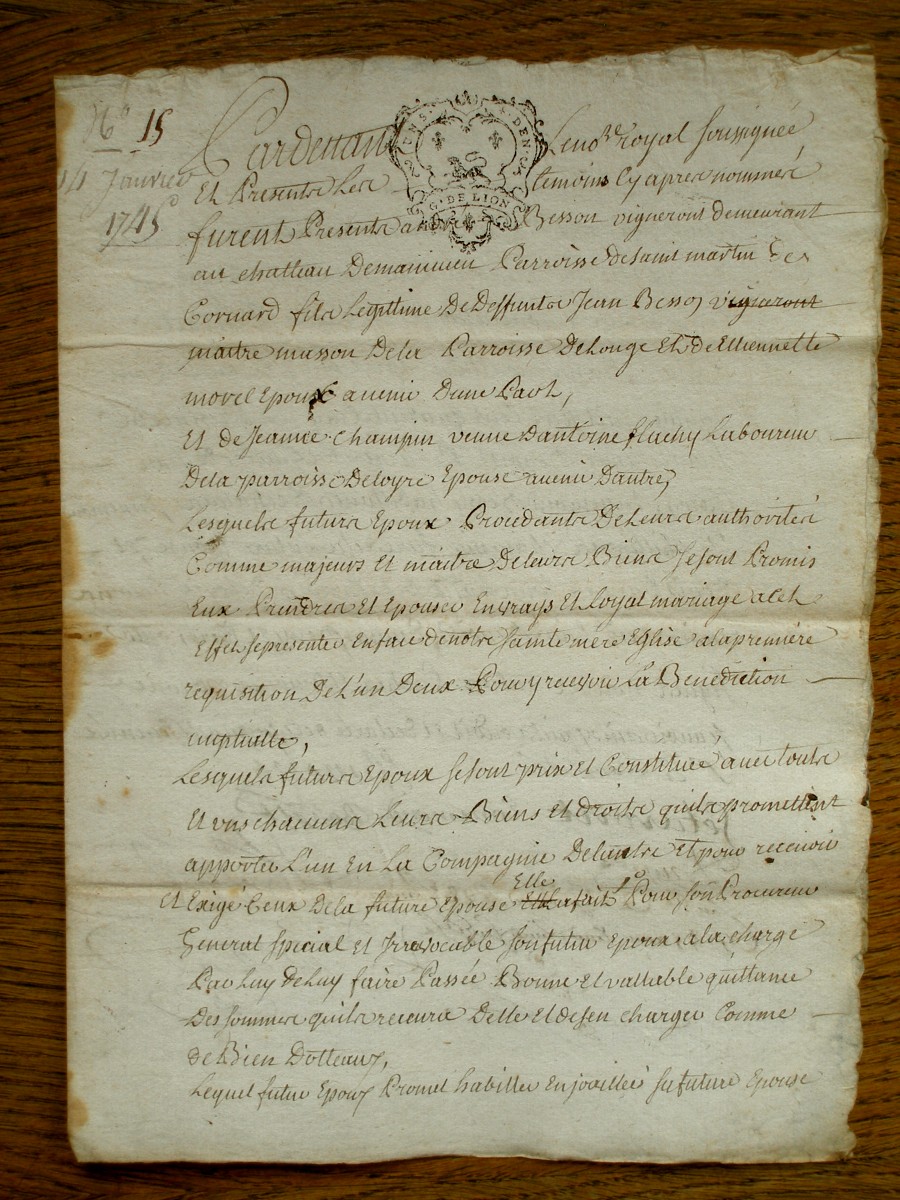 N° 15
14 Janvier
1745
Pardevant Le no.re royal soussignée
GENS. DEN. C
G. DE LION
Et Presents Les temoins Cy apres nommés
furent Presents Besson vigneront demeurant
au chatteau Demanineu Parroisse de saint martin de
Cornard fils Legittime De Deffunts Jean Besson vigneront
maitre masson Dela Parroisse Delonge Et de Ettiennette
morel Epoux avenir Dune Part,
Et de Jeanne Champin veuve dantoine fluchy Laboureur
Dela parroisse Deloyre Epouse avenir Dautre,
Lesquels futurs Epoux Procedants De Leurs authorités
Comme majeurs Et maitre Deleurs Biens se sont Promis
Eux Prendres Et Epouser En vrays Et loyal mariage a cet
Effet se presenter En face de notre sainte mere Eglise ala premiere
requisition De L'un Deux Pour y recevoir La Benediction
nuptialle,
Lesquels futurs Epoux se sont pris et Constitués avec touts
Et uns chacuns Leurs Biens Et droits quils promettent
apporter L'un En La Compagnie De lautre Et pour recevoir
Et Exigé Ceux De la future Epouse Elle afait Pour son Procureur
General special Et Irrevocable son futur Epoux ala charge
Par Luy de Luy faire Passée Bonne et vallable quittance
Des sommes quils recevra Delle Et desen charger Comme
de Bien Dotteaux,
Lequel futur Epoux Promet habiller Enjoaillée sa future Epouse